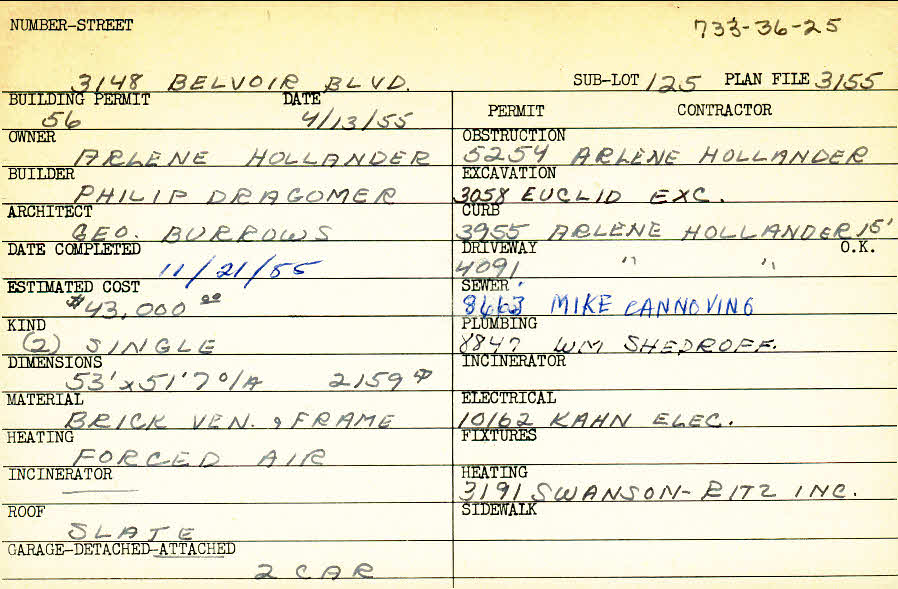 NUMBER-STREET 733-36-25
3148 BELVOIR BLVD. SUB-LOT 125 PLAN FILE 3155
BUILDING PERMIT DATE
56 4/13/55
OWNER
ARLENE HOLLANDER
BUILDER
PHILIP DRAGOMER
ARCHITECT
GEO. BURROWS
DATE COMPLETED
11/21/55
ESTIMATED COST
$43,000 00
KIND
(2) SINGLE
DIMENSIONS
53' x 51'7 O/A 2159
MATERIAL
BRICK VEN. & FRAME
HEATING
FORCED AIR
INCINERATOR
ROOF
SLATE
GARAGE-DETACHED-ATTACHED
2 CAR
PERMIT CONTRACTOR
OBSTRUCTION
5254 ARLENE HOLLANDER
EXCAVATION
3058 EUCLID EXC.
CURB
3955 ARLENE HOLLANDER 15'
DRIVEWAY O.K.
4091 " "
SEWER
8463 MIKE CANNOVINO
PLUMBING
8847 WM SHEDROFF.
INCINERATOR
ELECTRICAL
10162 KAHN ELEC.
FIXTURES
HEATING
3191 SWANSON-RITZ INC.
SIDEWALK